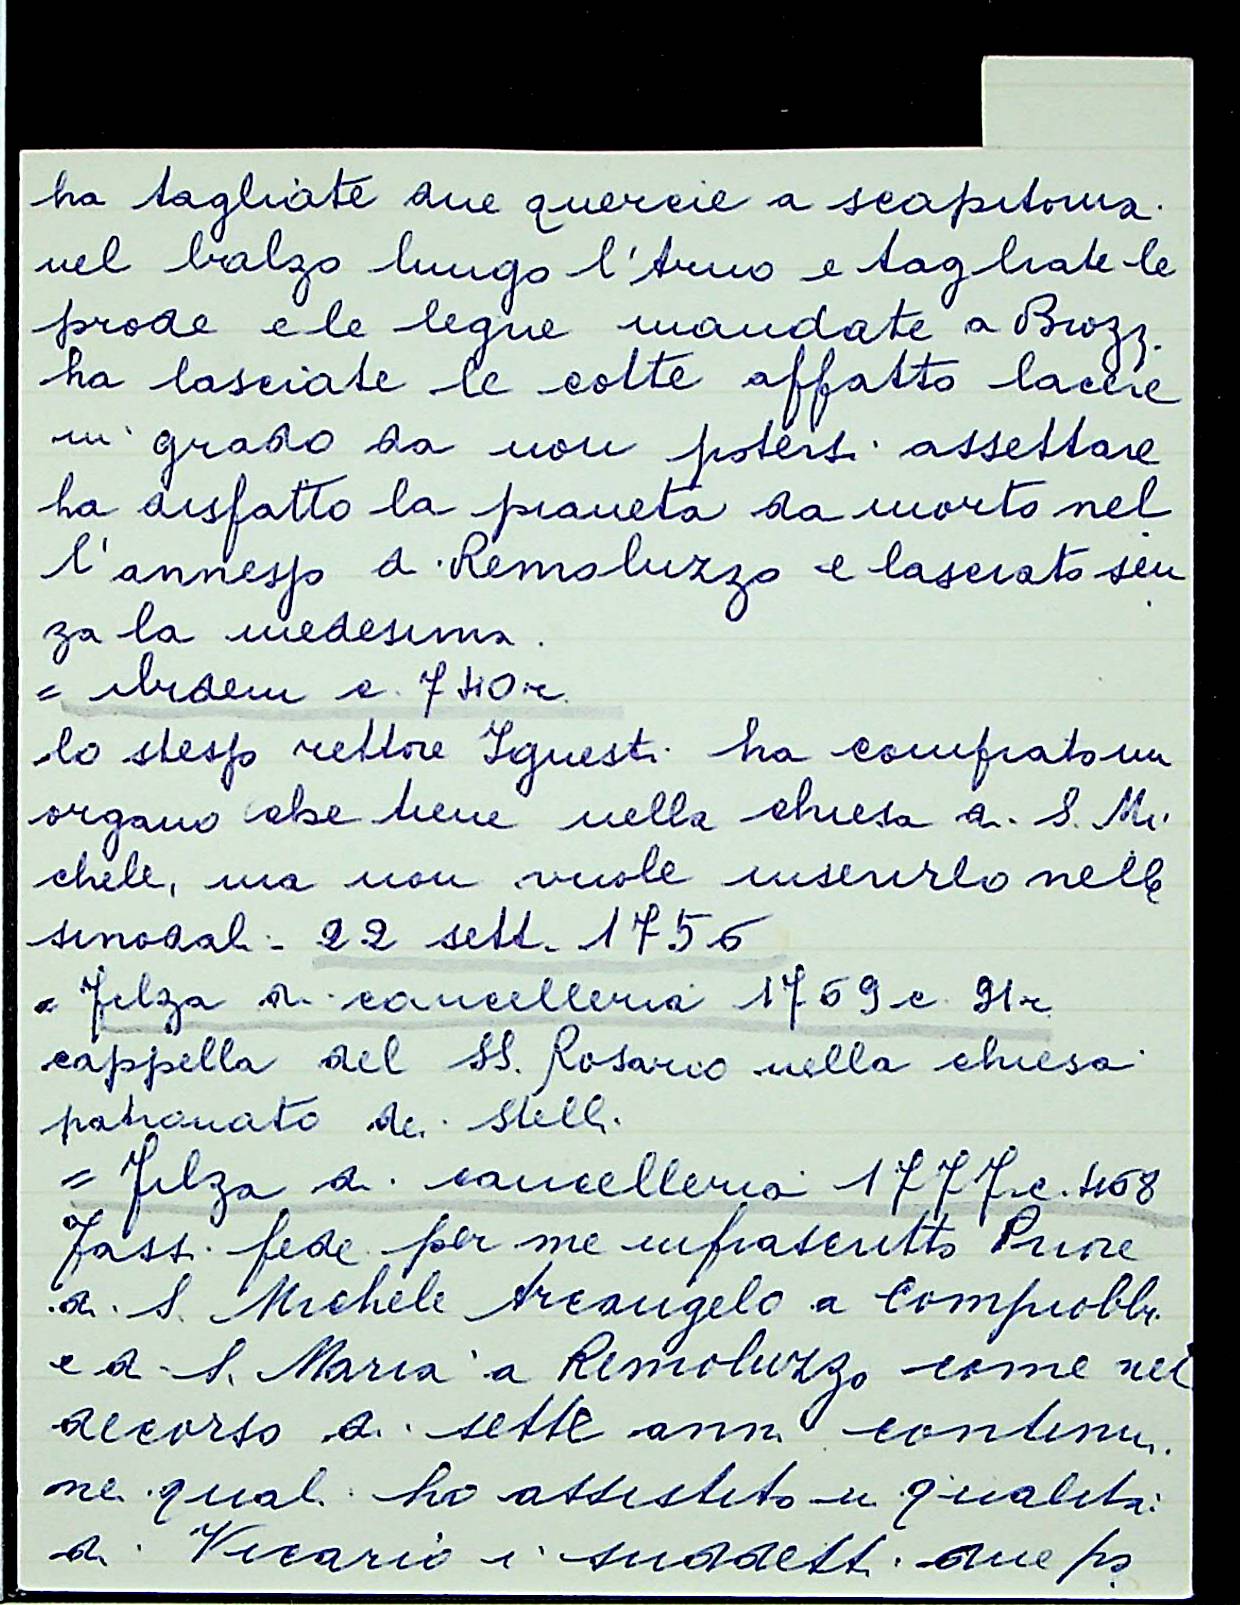 ha tagliate due quercie a scapitozza
nel balzo lungo l'Arno e tagliate le
prode e le legne mandate a Brozzi
ha lasciate le cotte affatto lacere
in grado da non potersi assettare
ha disfatto la pianeta da morto nel
l'annesso di Remoluzzo e lasciato sen
za la medesima.
= Ibidem c. 740r.
lo stesso rettore Ignesti ha comprato un
organo che tiene nella chiesa di S. Mi
chele, ma non vuole inserirlo nelle
sinodali - 22 sett. 1756
= Filza di cancelleria 1769 c. 91r
cappella del SS. Rosario nella chiesa
patronato de. Stelli.
= Filza di cancelleria 1777 c. 468
Fassi fede per me infrascritto Priore
di S. Michele Arcangelo a Compiobbi
e di S. Maria a Remoluzzo come nel
decorso di sette anni continui
nei quali ho assistito in qualità
di Vicario i suddetti due po